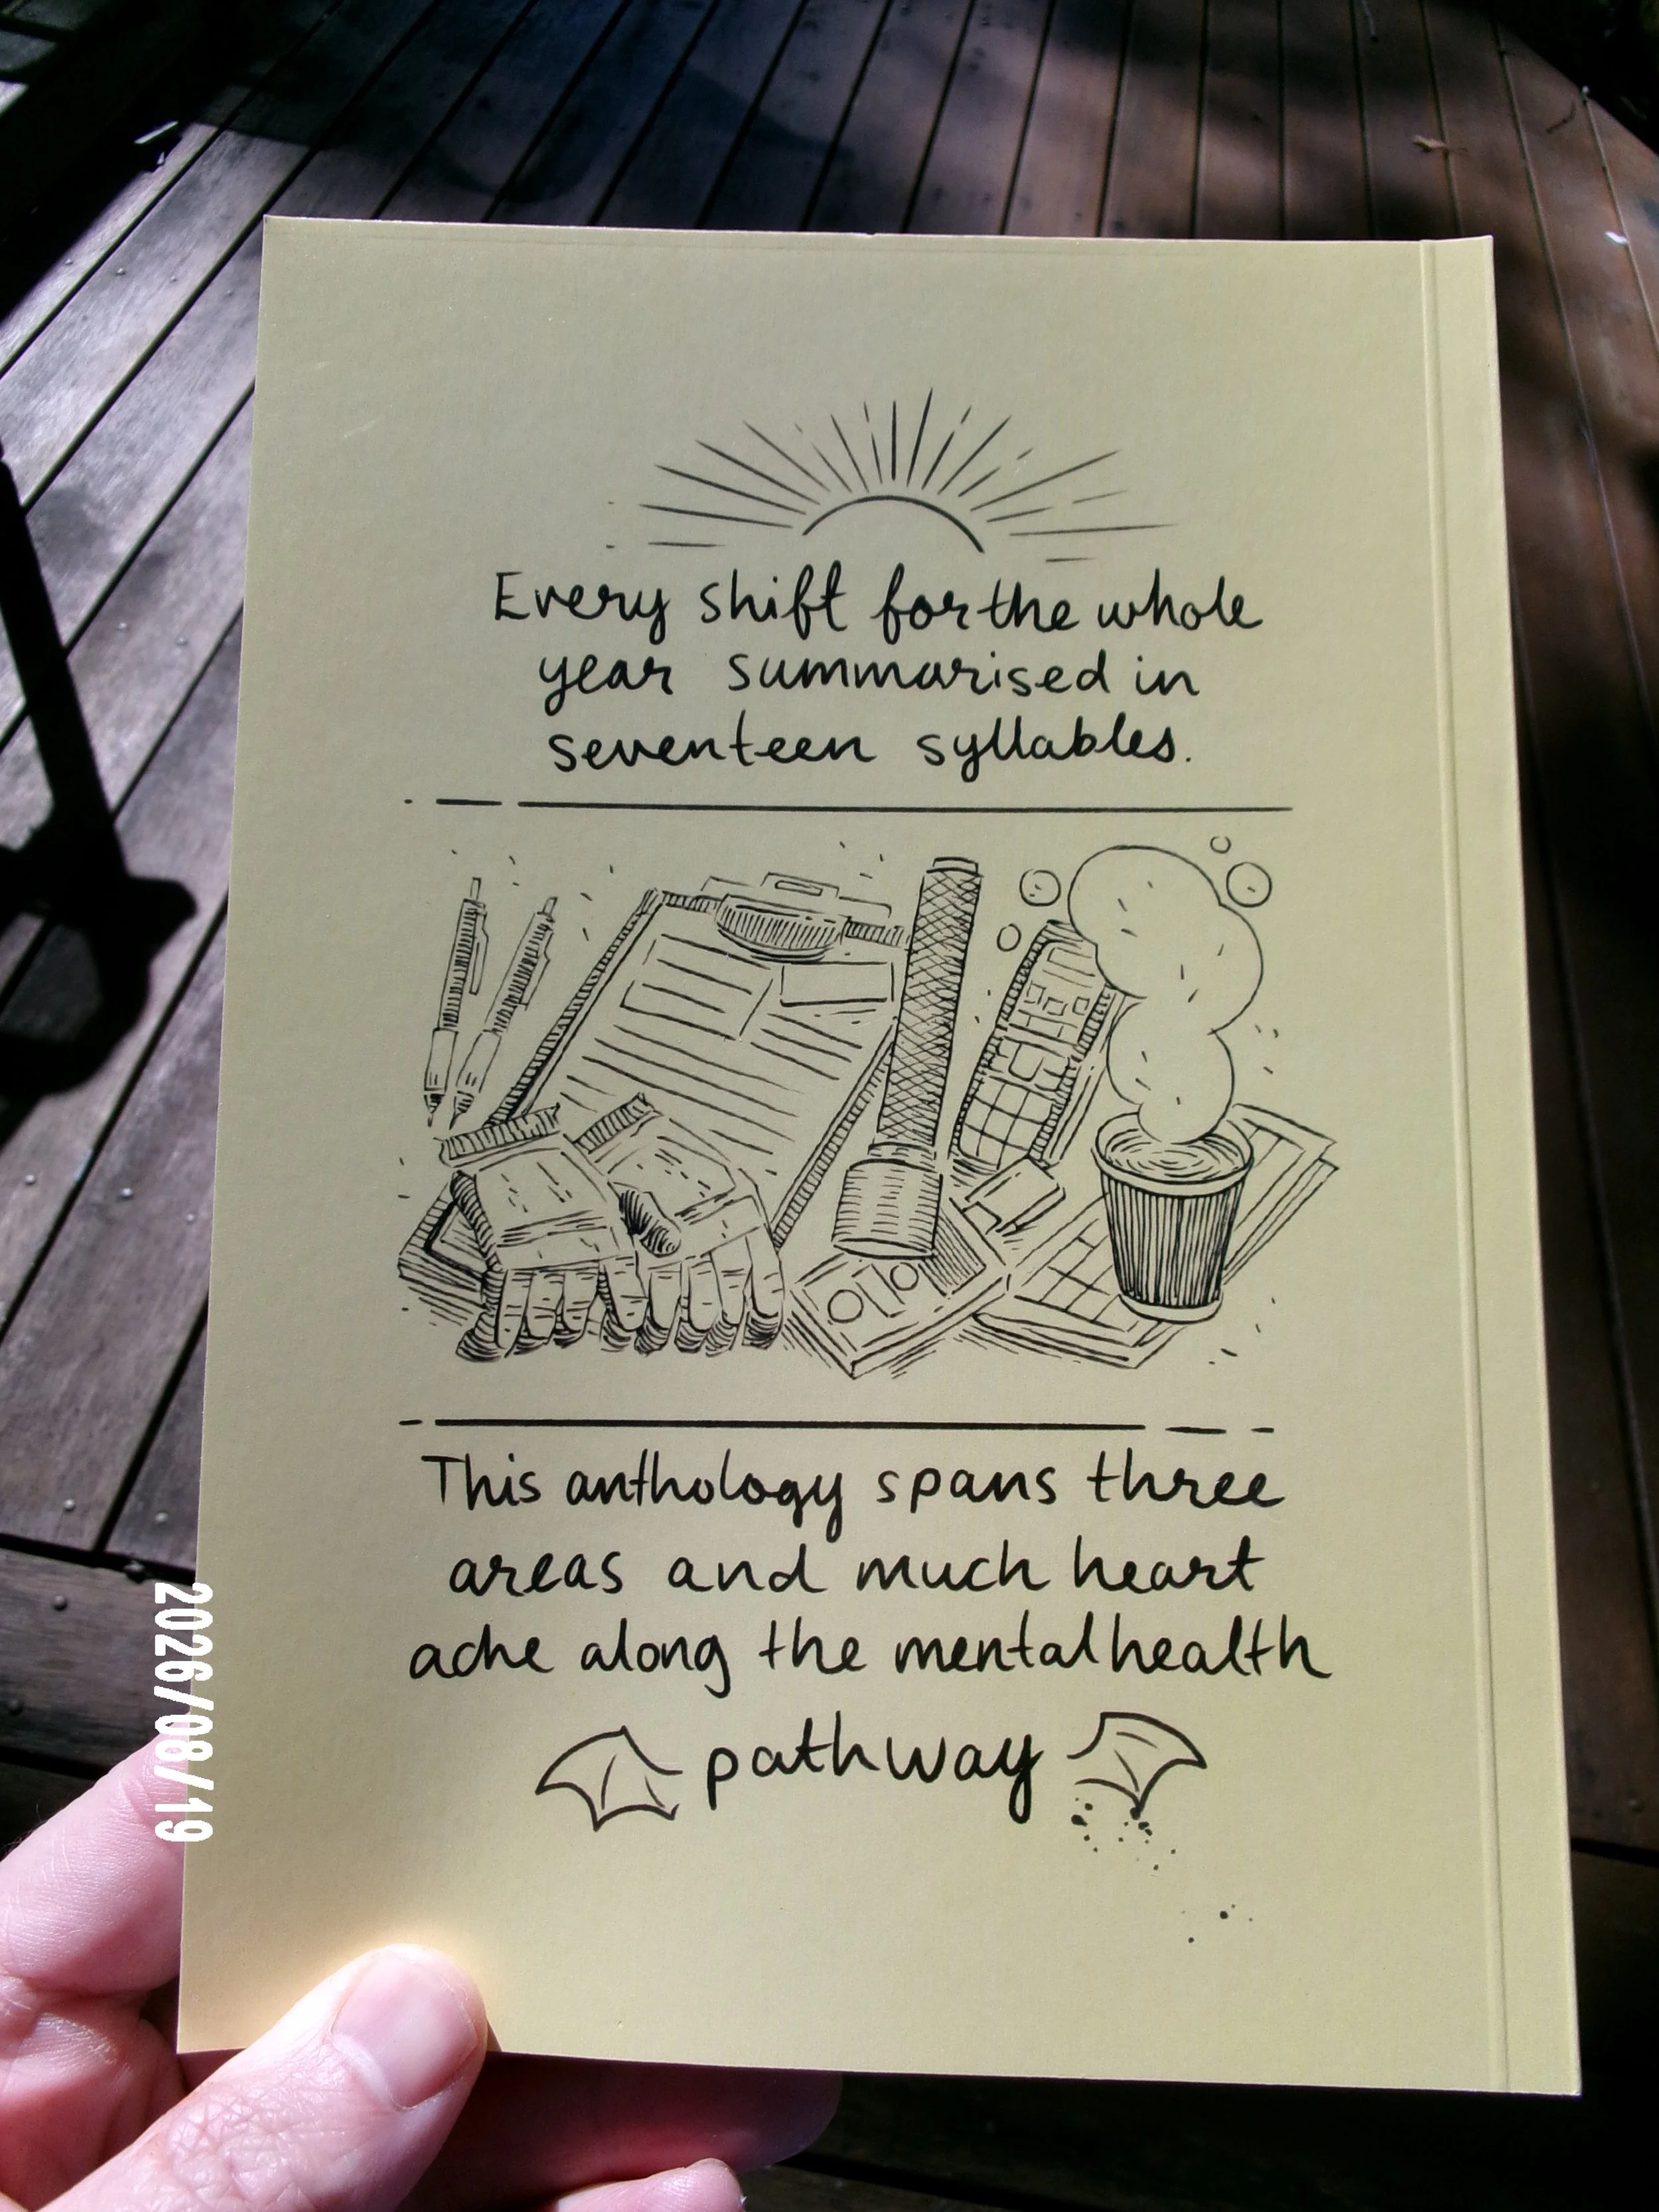 Every shift for the whole
year summarised in
seventeen syllables.
This anthology spans three
areas and much heart
ache along the mental health
pathway
2026/08/19